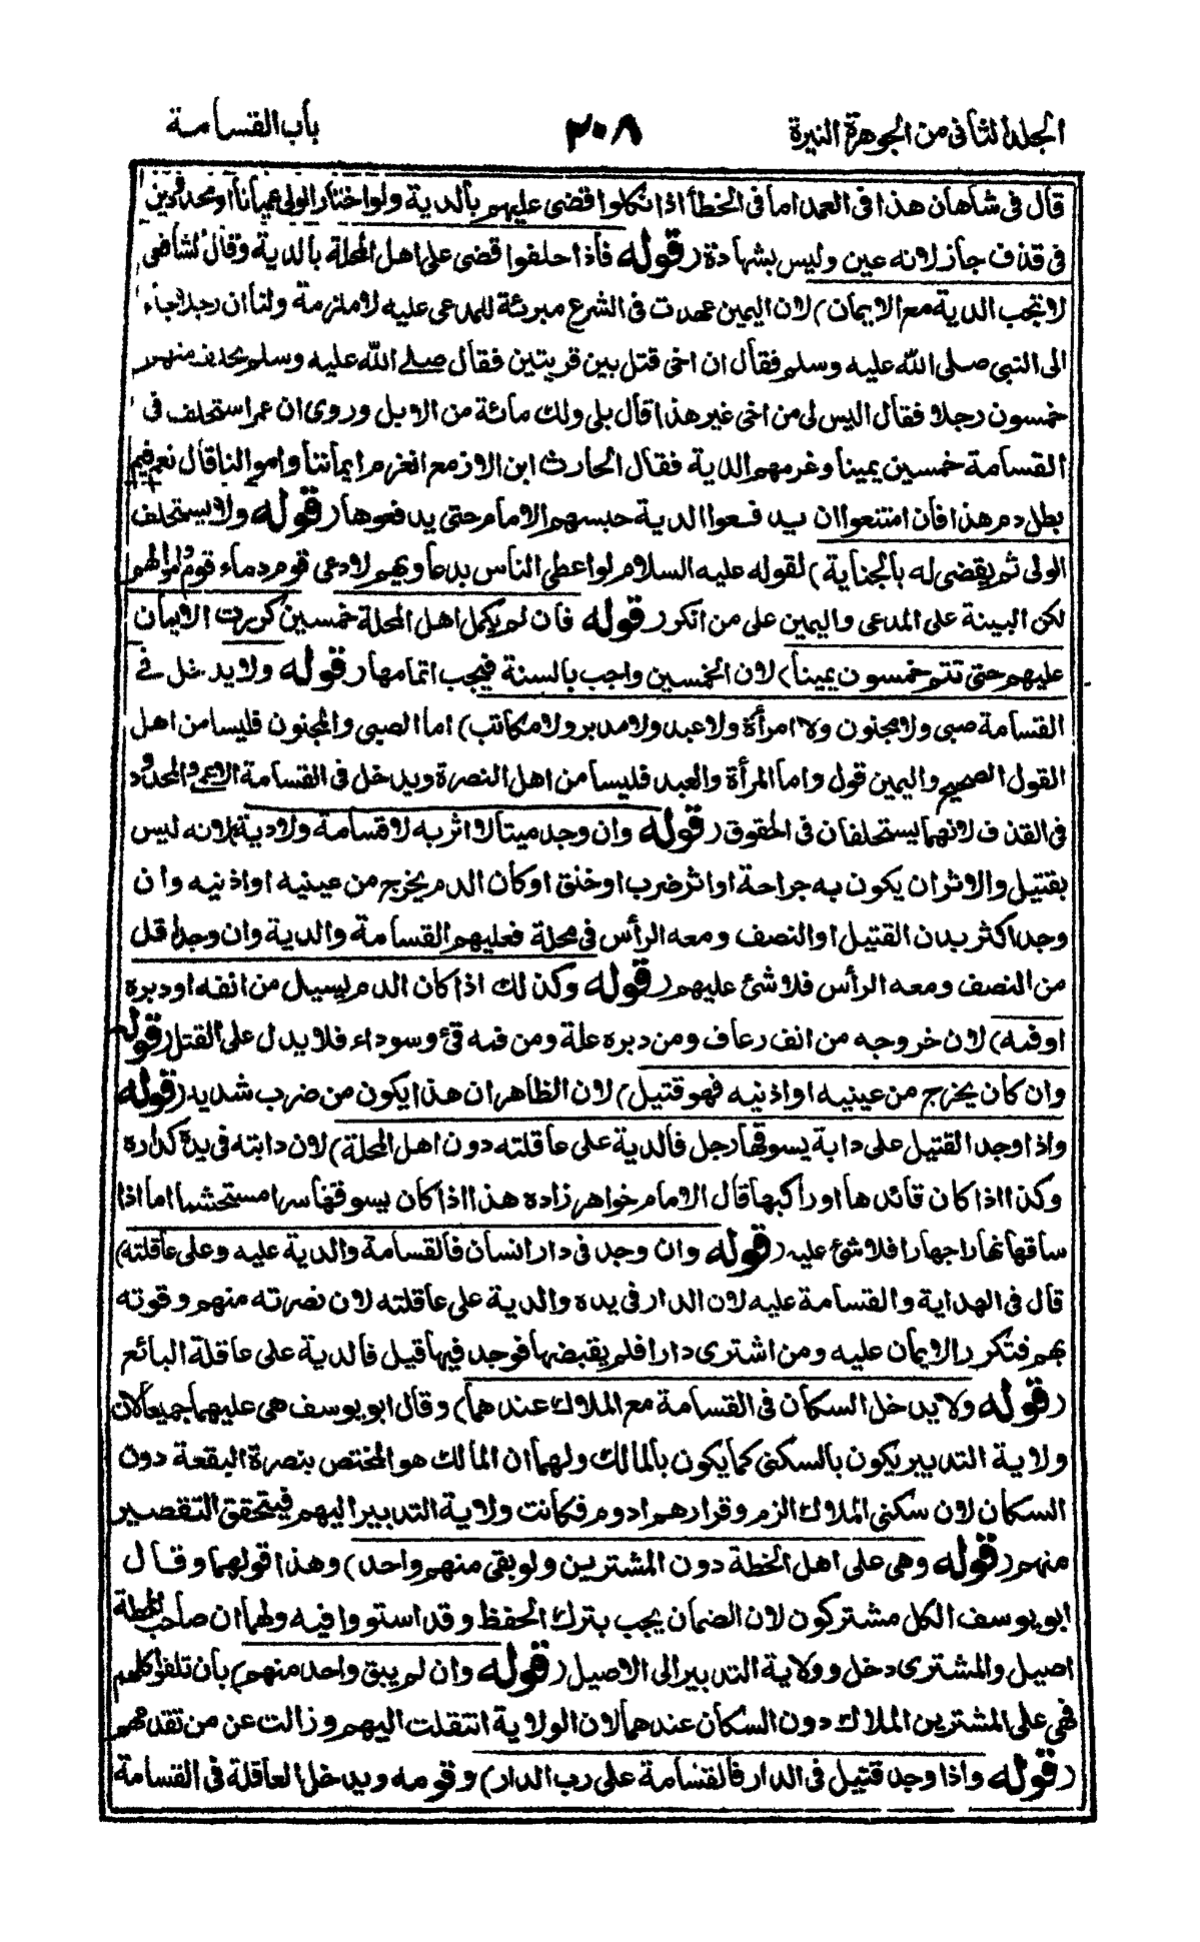 الجلد الثانى من الجوهرة النيرة ٣٠٨ باب القسامة
قال فى شاهان هذا فى العمد اما فى الخطأ اذا نكلوا قضى عليهم بالدية ولو اختار الولى عميانا او محدودين
فى قذف جاز لانه يمين وليس بشهادة (قوله فاذا حلفوا قضى على اهل المحلة بالدية وقال الشافعى
لا تجب الدية مع الايمان) لان اليمين عهدت فى الشرع مبرئة للمدعى عليه لا ملزمة ولنا ان رجلا جاء
الى النبى صلى الله عليه وسلم فقال ان اخى قتل بين قريتين فقال صلى الله عليه وسلم يحلف منهم
خمسون رجلا فقال اليس لى من اخى غير هذا قال بلى ولك مائة من الابل وروى ان عمر استحلف فى
القسامة خمسين يمينا وغرمهم الدية فقال الحارث ابن الازمع انغرم ايماننا واموالنا قال نعم فبم
يطل دم هذا فان امتنعوا ان يدفعوا الدية حبسهم الامام حتى يدفعوها (قوله ولا يستحلف
الولى ثم يقضى له بالجناية) لقوله عليه السلام لو اعطى الناس بدعاويهم لادعى قوم دماء قوم واموالهم
لكن البينة على المدعى واليمين على من انكر (قوله فان لم يكمل اهل المحلة خمسين كررت الايمان
عليهم حتى تتم خمسون يمينا) لان الخمسين واجب بالسنة فيجب اتمامها (قوله ولا يدخل فى
القسامة صبى ولا مجنون ولا امرأة ولا عبد ولا مدبر ولا مكاتب) اما الصبى والمجنون فليسا من اهل
القول الصحيح واليمين قول واما المرأة والعبد فليسا من اهل النصرة ويدخل فى القسامة الاعمى والمحدود
فى القذف لانهما يستحلفان فى الحقوق (قوله وان وجد ميتا لا اثر به لا قسامة ولا دية) لانه ليس
بقتيل والاثر ان يكون به جراحة او اثر ضرب او خنق او كان الدم يخرج من عينيه او اذنيه وان
وجد اكثر بدن القتيل او النصف ومعه الرأس فى محلة فعليهم القسامة والدية وان وجد اقل
من النصف ومعه الرأس فلا شئ عليهم (قوله وكذلك اذا كان الدم يسيل من انفه او دبره
او فمه) لان خروجه من انف رعاف ومن دبره علة ومن فمه قئ وسوداء فلا يدل على القتل (قوله
وان كان يخرج من عينيه او اذنيه فهو قتيل) لان الظاهر ان هذا يكون من ضرب شديد (قوله
واذا وجد القتيل على دابة يسوقها رجل فالدية على عاقلته دون اهل المحلة) لان دابته فى يده كداره
وكذا اذا كان قائدها او راكبها قال الامام خواهر زاده هذا اذا كان يسوقها سرا مستحشما اما اذا
ساقها نهارا جهارا فلا شئ عليه (قوله وان وجد فى دار انسان فالقسامة والدية عليه وعلى عاقلته)
قال فى الهداية والقسامة عليه لان الدار فى يده والدية على عاقلته لان نصرته منهم وقوته
بهم فتكرر الايمان عليه ومن اشترى دارا فلم يقبضها فوجد فيها قيل فالدية على عاقلة البائع
(قوله ولا يدخل السكان فى القسامة مع الملاك عندهما) وقال ابو يوسف هى عليهما جميعا لان
ولاية التدبير يكون بالسكنى كما يكون بالمالك ولهما ان المالك هو المختص بنصرة البقعة دون
السكان لان سكنى الملاك الزم وقرارهم ادوم فكانت ولاية التدبير اليهم فيتحقق التقصير
منهم (قوله وهى على اهل الخطة دون المشترين ولو بقى منهم واحد) وهذا قولهما وقال
ابو يوسف الكل مشتركون لان الضمان يجب بترك الحفظ وقد استووا فيه ولهما ان صاحب الخطة
اصيل والمشترى دخل وولاية التدبير الى الاصيل (قوله وان لم يبق واحد منهم) بان تلفوا كلهم
فهى على المشترين الملاك دون السكان عندهما لان الولاية انتقلت اليهم وزالت عن من تقدمهم
(قوله واذا وجد قتيل فى الدار فالقسامة على رب الدار) وقومه ويدخل العاقلة فى القسامة